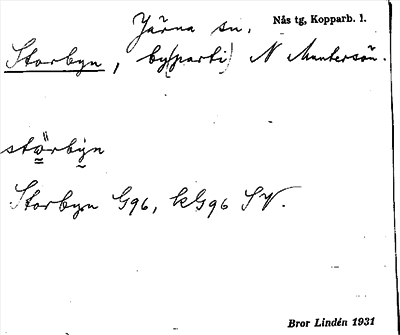 Järna sn. Nås tg, Kopparb. l.
Storbyn, by(parti) N Muntersön.
stɷ̈rbyn
Storbyn G96, kG96 SV.
Bror Lindén 1931